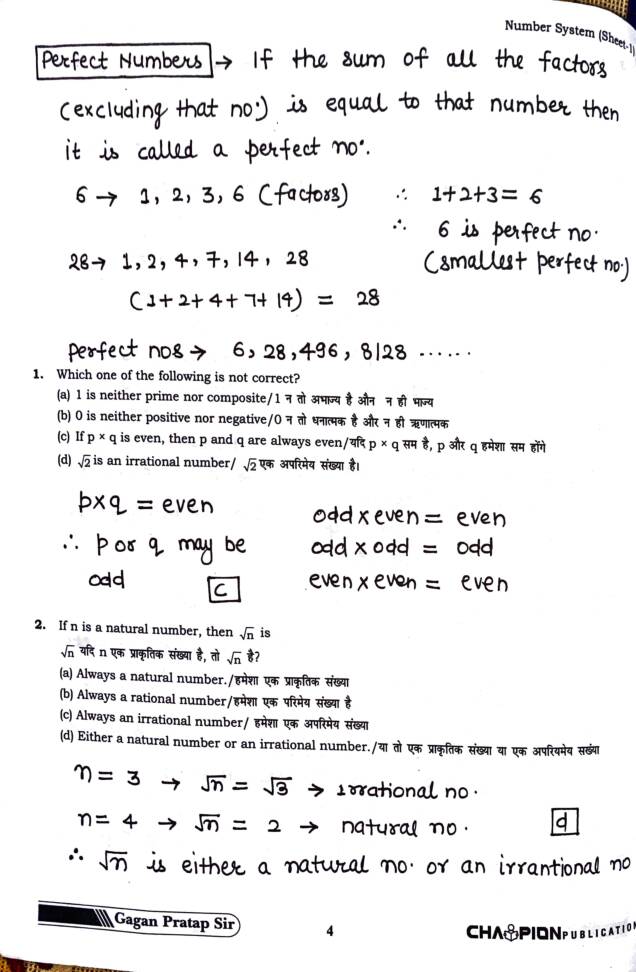 Number System (Sheet-1)
Perfect Numbers → If the sum of all the factors
(excluding that no.) is equal to that number then
it is called a perfect no.
6 → 1, 2, 3, 6 (factors) ∴ 1+2+3 = 6
∴ 6 is perfect no.
28 → 1, 2, 4, 7, 14, 28 (smallest perfect no.)
(1+2+4+7+14) = 28
perfect nos → 6, 28, 496, 8128 ......
1. Which one of the following is not correct?
(a) 1 is neither prime nor composite/1 न तो अभाज्य है औन न ही भाज्य
(b) 0 is neither positive nor negative/0 न तो धनात्मक है और न ही ऋणात्मक
(c) If p × q is even, then p and q are always even/यदि p × q सम है, p और q हमेशा सम होंगे
(d) √2 is an irrational number/ √2 एक अपरिमेय संख्या है।
p×q = even odd × even = even
∴ p or q may be odd × odd = odd
odd C even × even = even
2. If n is a natural number, then √n is
√n यदि n एक प्राकृतिक संख्या है, तो √n है?
(a) Always a natural number./हमेशा एक प्राकृतिक संख्या
(b) Always a rational number/हमेशा एक परिमेय संख्या है
(c) Always an irrational number/ हमेशा एक अपरिमेय संख्या
(d) Either a natural number or an irrational number./या तो एक प्राकृतिक संख्या या एक अपरियमेय सख्ंया
n = 3 → √n = √3 → irrational no.
n = 4 → √n = 2 → natural no. d
∴ √n is either a natural no. or an irrantional no
Gagan Pratap Sir 4 CHAMPION PUBLICATION